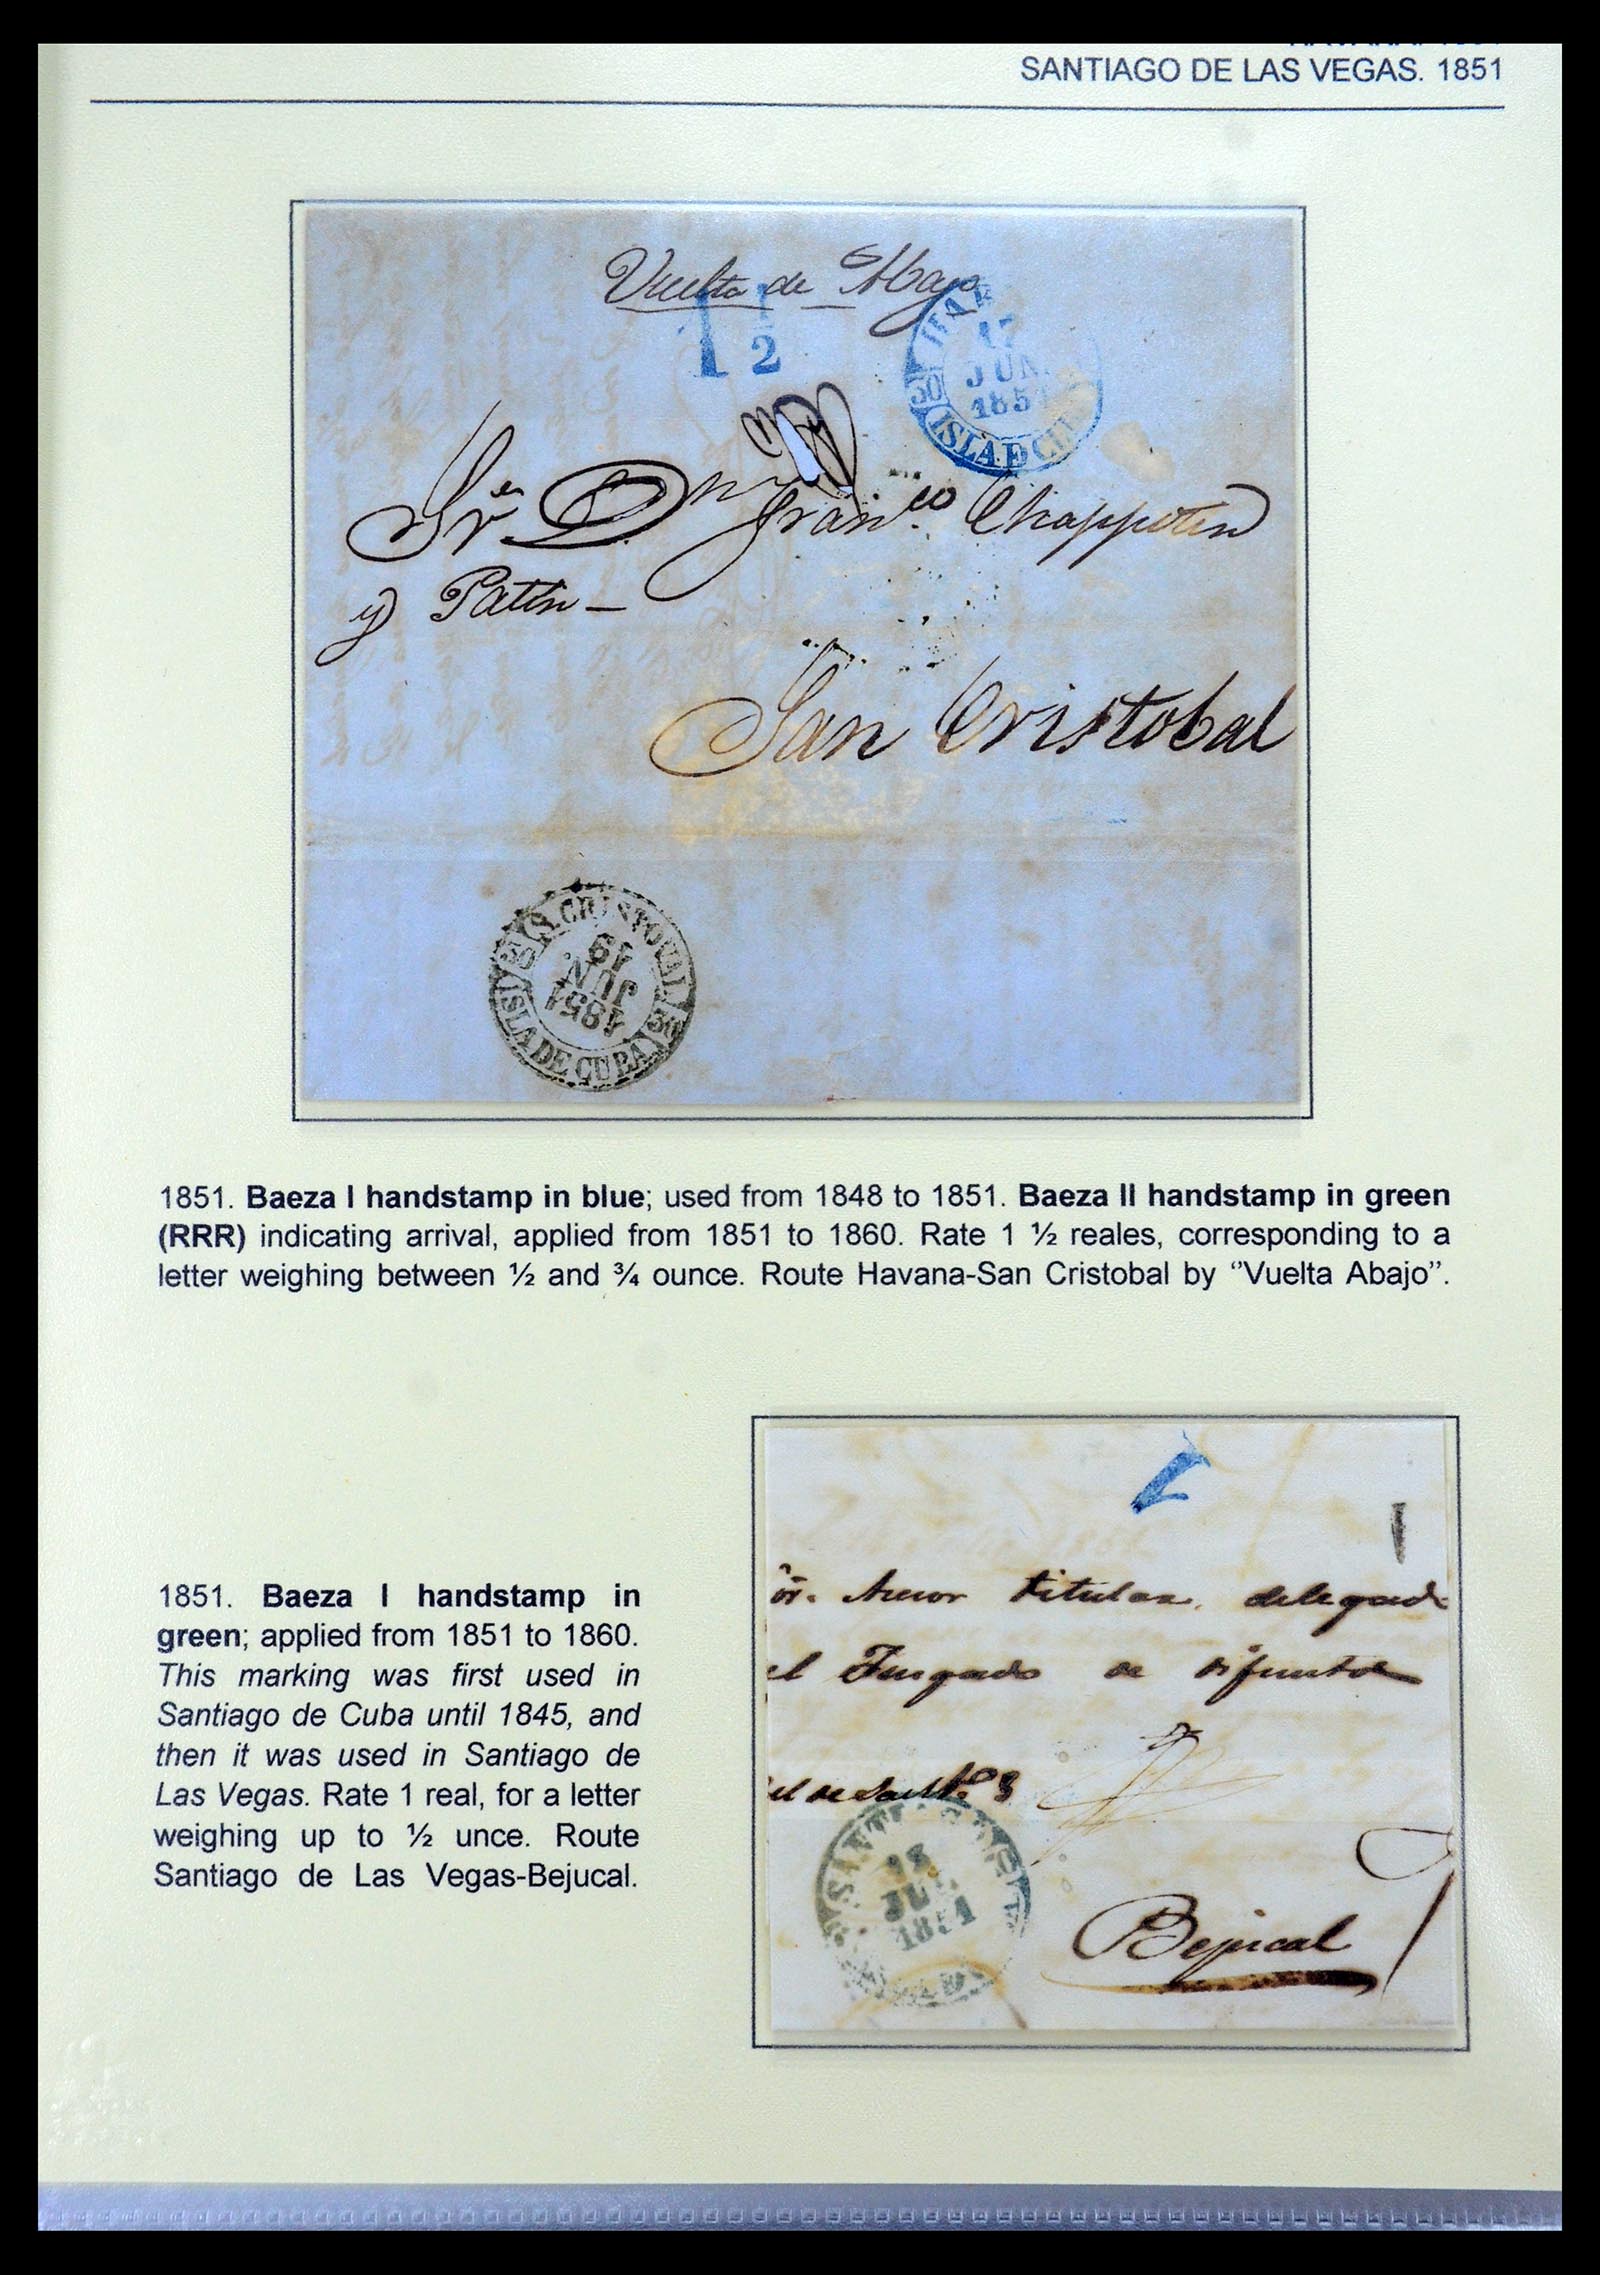 SANTIAGO DE LAS VEGAS. 1851
Vuelta de Abajo
1 1/2
HAB
17
JUN.
1851
30
ISLA DE CU
Sr. Dn Franco. Chappotin
y Patin
San Cristobal
S. CRISTOBAL
19
JUN.
1851
30 30
ISLA DE CUBA
1851. Baeza I handstamp in blue; used from 1848 to 1851. Baeza II handstamp in green
(RRR) indicating arrival, applied from 1851 to 1860. Rate 1 ½ reales, corresponding to a
letter weighing between ½ and ¾ ounce. Route Havana-San Cristobal by “Vuelta Abajo”.
1851. Baeza I handstamp in
green; applied from 1851 to 1860.
This marking was first used in
Santiago de Cuba until 1845, and
then it was used in Santiago de
Las Vegas. Rate 1 real, for a letter
weighing up to ½ unce. Route
Santiago de Las Vegas-Bejucal.
or. Asesor titular delegad
el Juzgado de difuntos
el de Sant.o
SANTIAGO
18
JU
1851
Bejucal